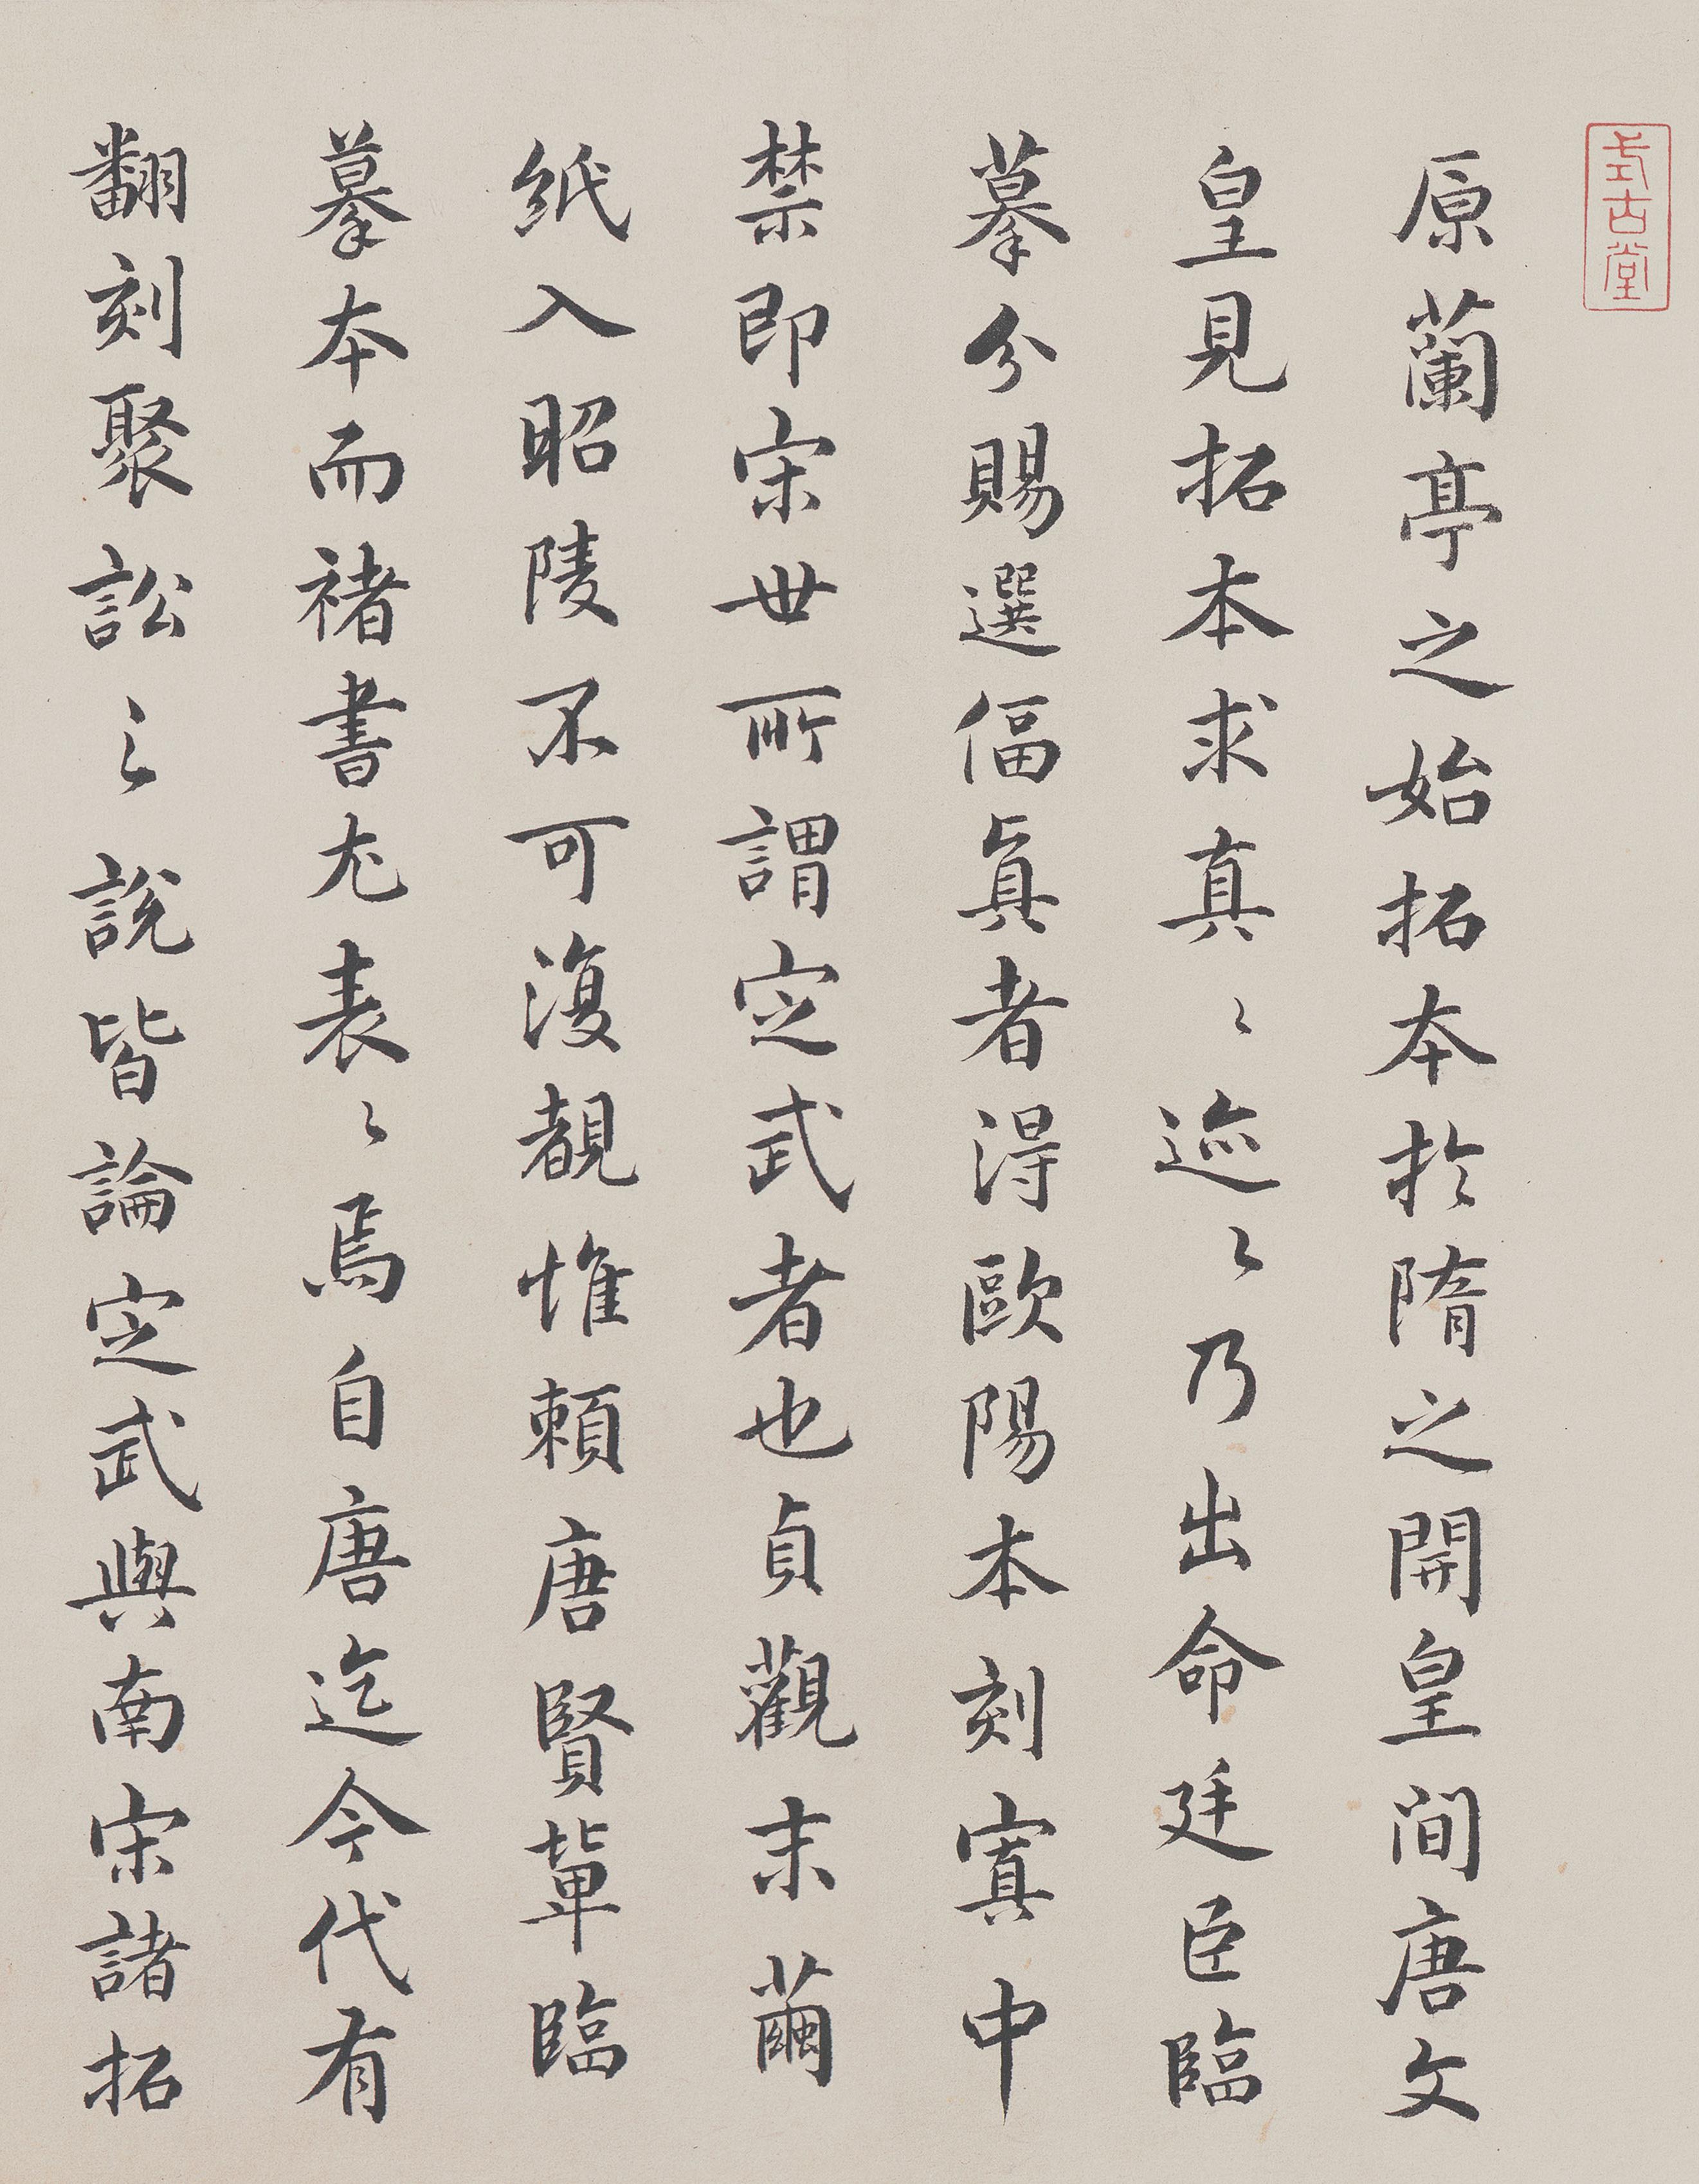 式古堂
原蘭亭之始拓本於隋之開皇間唐文
皇見拓本求真〻迹〻乃出命廷臣臨
摹分賜選偪真者得歐陽本刻寘中
禁即宋世所謂定武者也貞觀末繭
紙入昭陵不可復覩惟賴唐賢輩臨
摹本而褚書尤表〻焉自唐迄今代有
翻刻聚訟之說皆論定武與南宋諸拓